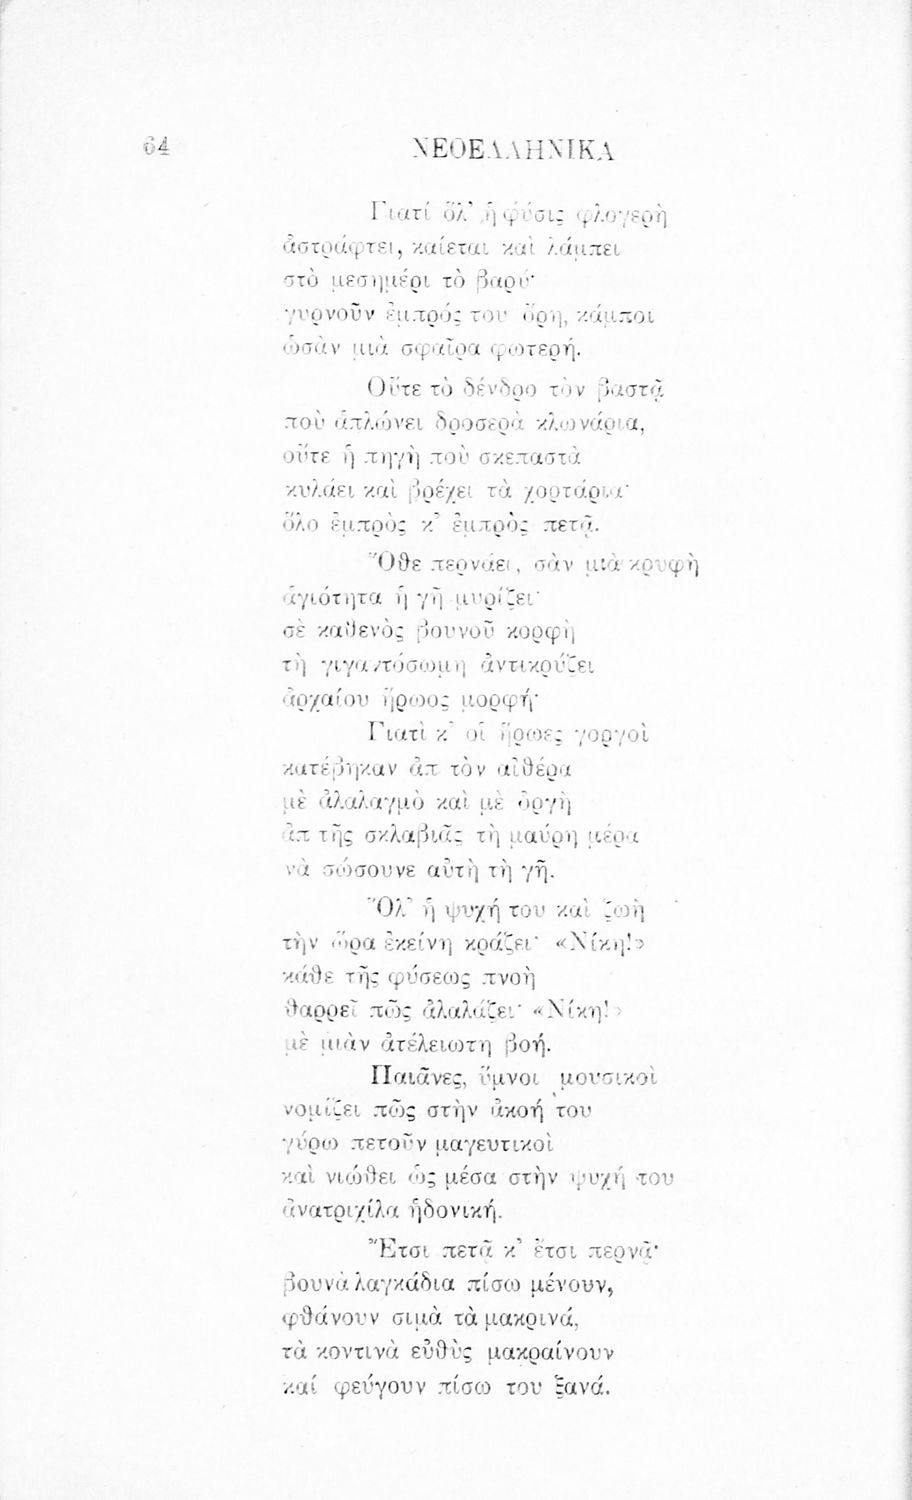 64
ΝΕΟΕΛΛΗΝΙΚΑ
Γιατί ὅλ᾽ ἡ φύσις φλογερὴ
ἀστράφτει, καίεται καὶ λάμπει
στὸ μεσημέρι τὸ βαρύ·
γυρνοῦν ἐμπρός του ὄρη, κάμποι
ὡσὰν μιὰ σφαῖρα φωτερή.
Οὔτε τὸ δένδρο τὸν βαστᾷ
ποὺ ἁπλώνει δροσερὰ κλωνάρια,
οὔτε ἡ πηγὴ ποὺ σκεπαστὰ
κυλάει καὶ βρέχει τὰ χορτάρια·
ὅλο ἐμπρὸς κ᾽ ἐμπρὸς πετᾷ.
Ὅθε περνάει, σὰν μιὰ κρυφὴ
ἁγιότητα ἡ γῆ μυρίζει·
σὲ καθενὸς βουνοῦ κορφὴ
τὴ γιγαντόσωμη ἀντικρύζει
ἀρχαίου ἥρωος μορφή·
Γιατὶ κ᾽ οἱ ἥρωες γοργοὶ
κατέβηκαν ἀπ τὸν αἰθέρα
μὲ ἀλαλαγμὸ καὶ μὲ ὀργὴ
ἀπ τῆς σκλαβιᾶς τὴ μαύρη μέρα
νὰ σώσουνε αὐτὴ τὴ γῆ.
Ὅλ᾽ ἡ ψυχή του καὶ ζωὴ
τὴν ὥρα ἐκείνη κράζει· «Νίκη!»
κάθε τῆς φύσεως πνοὴ
θαρρεῖ πῶς ἀλαλάζει· «Νίκη!»
μὲ μιὰν ἀτέλειωτη βοή.
Παιᾶνες, ὕμνοι μουσικοὶ
νομίζει πῶς στὴν ἀκοή του
γύρω πετοῦν μαγευτικοὶ
καὶ νιώθει ὡς μέσα στὴν ψυχή του
ἀνατριχίλα ἡδονική.
Ἔτσι πετᾷ κ᾽ ἔτσι περνᾷ·
βουνὰ λαγκάδια πίσω μένουν,
φθάνουν σιμὰ τὰ μακρινά,
τὰ κοντινὰ εὐθὺς μακραίνουν
καί φεύγουν πίσω του ξανά.